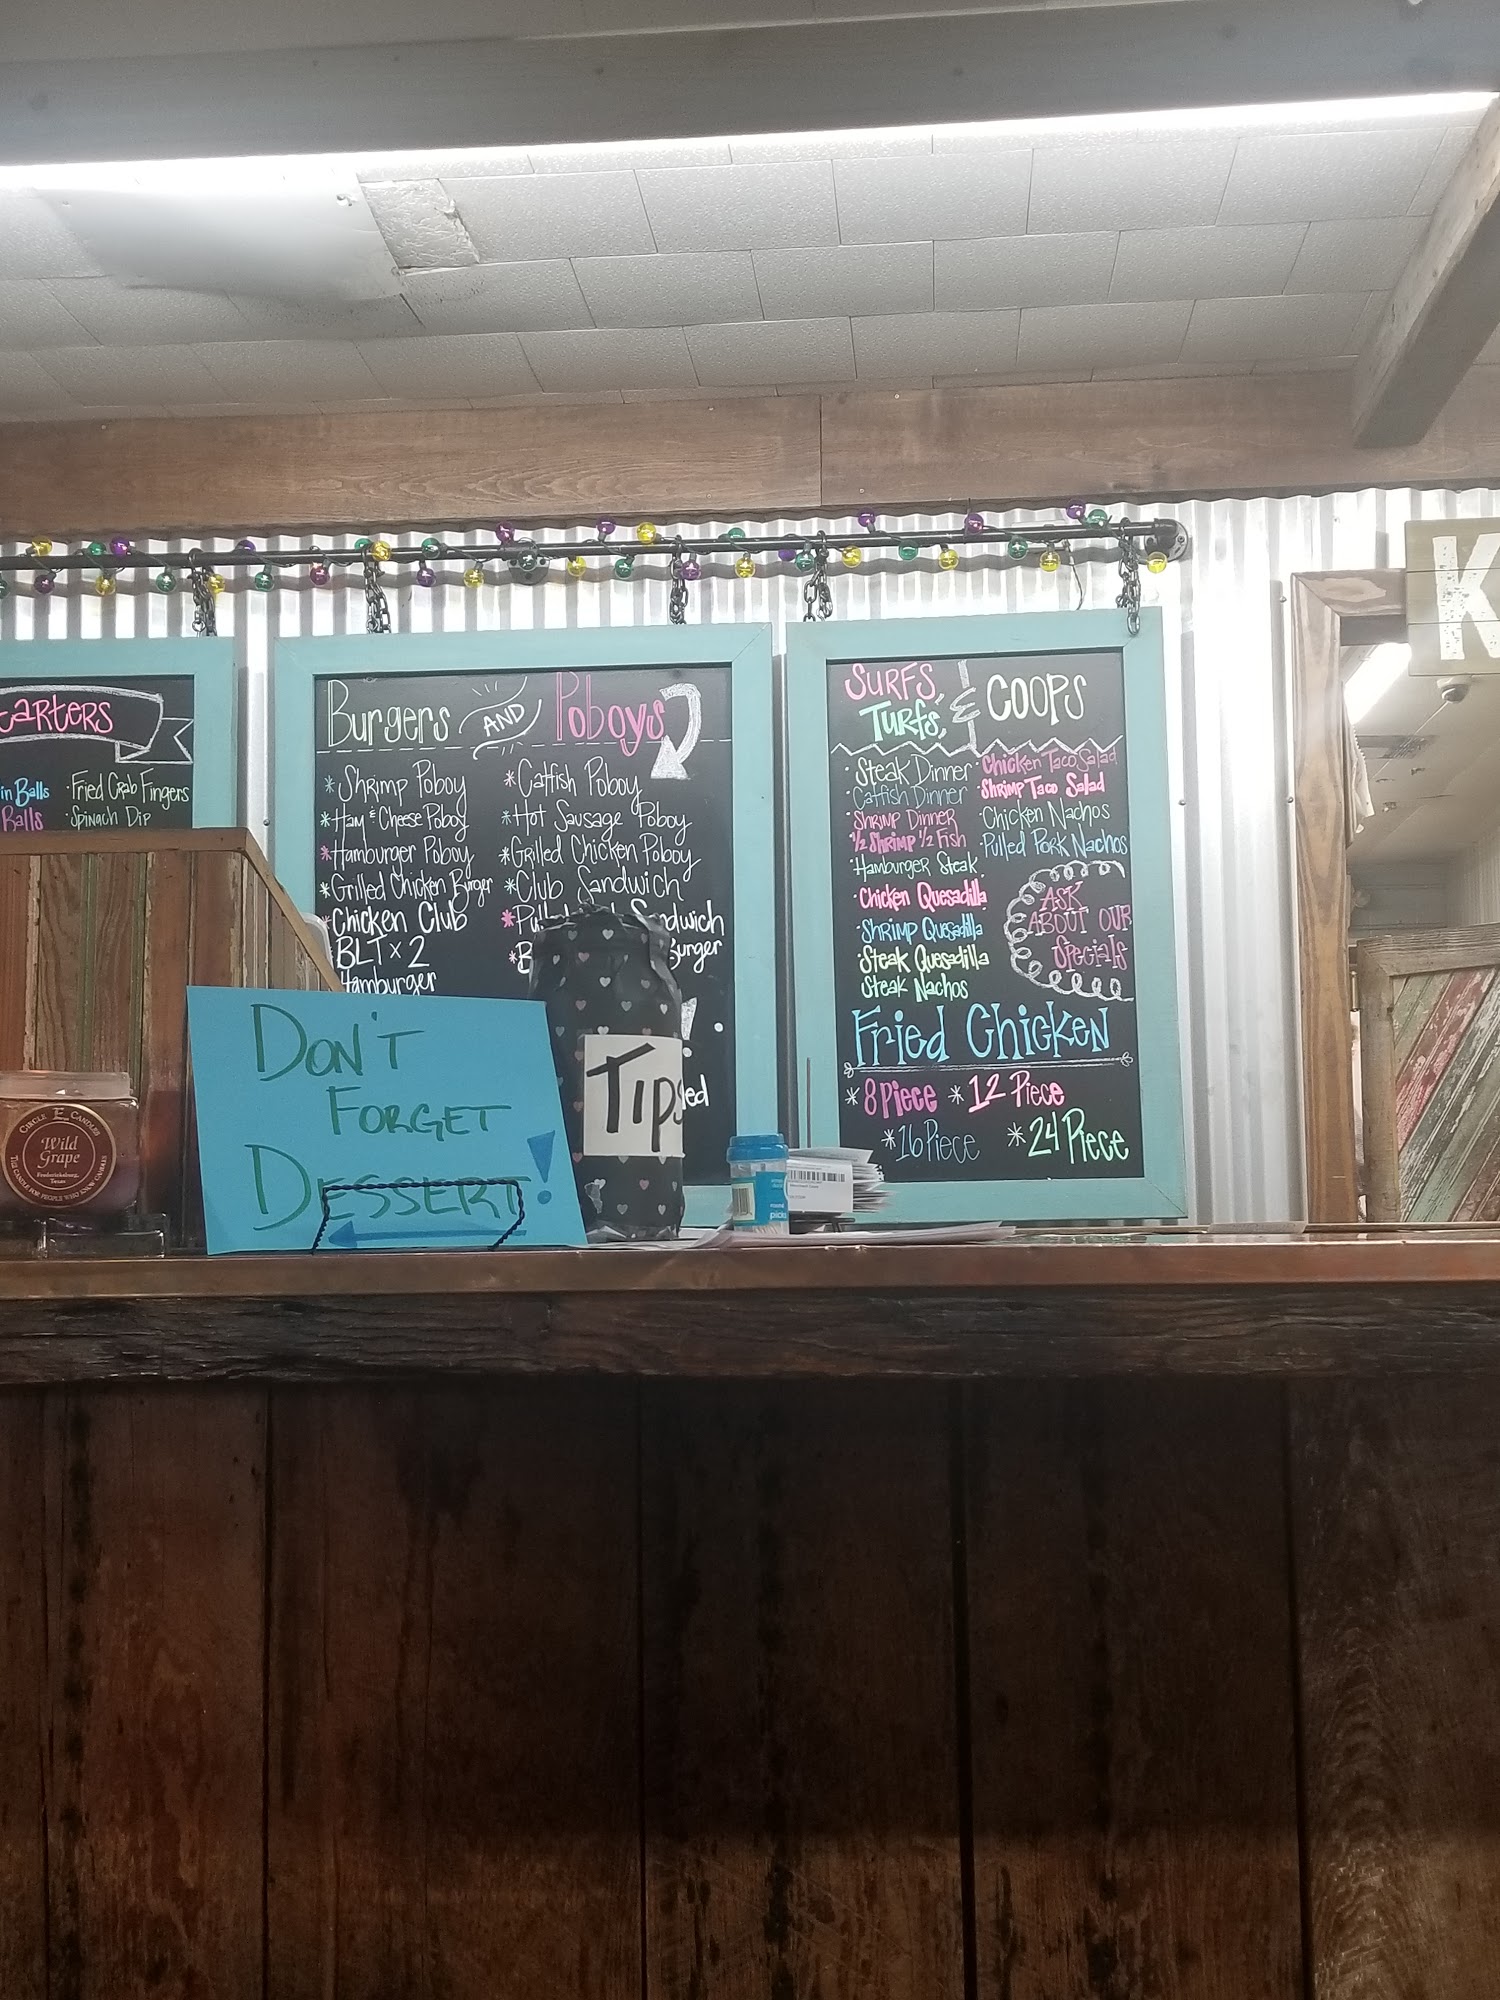 in Balls
Balls
·Fried Crab Fingers
·Spinach Dip
Burgers AND Poboys
*Shrimp Poboy
*Ham & Cheese Poboy
*Hamburger Poboy
*Grilled Chicken Burger
*Chicken Club
BLT x 2
Hamburger
*Catfish Poboy
*Hot Sausage Poboy
*Grilled Chicken Poboy
*Club Sandwich
SURFS,
Turfs,
& COOPS
·Steak Dinner
·Catfish Dinner
·Shrimp Dinner
·1/2 Shrimp 1/2 Fish
·Hamburger Steak
·Chicken Quesadilla
·Shrimp Quesadilla
·Steak Quesadilla
Steak Nachos
·Chicken Taco Salad
·Shrimp Taco Salad
·Chicken Nachos
·Pulled Pork Nachos
ASK
ABOUT OUR
Specials
Fried Chicken
*8 Piece *12 Piece
*16 Piece *24 Piece
K
Don't
Forget
Dessert!
Tips
Circle E Candles
Wild
Grape
Fredericksburg,
Texas
The candle for people who know candles
picks